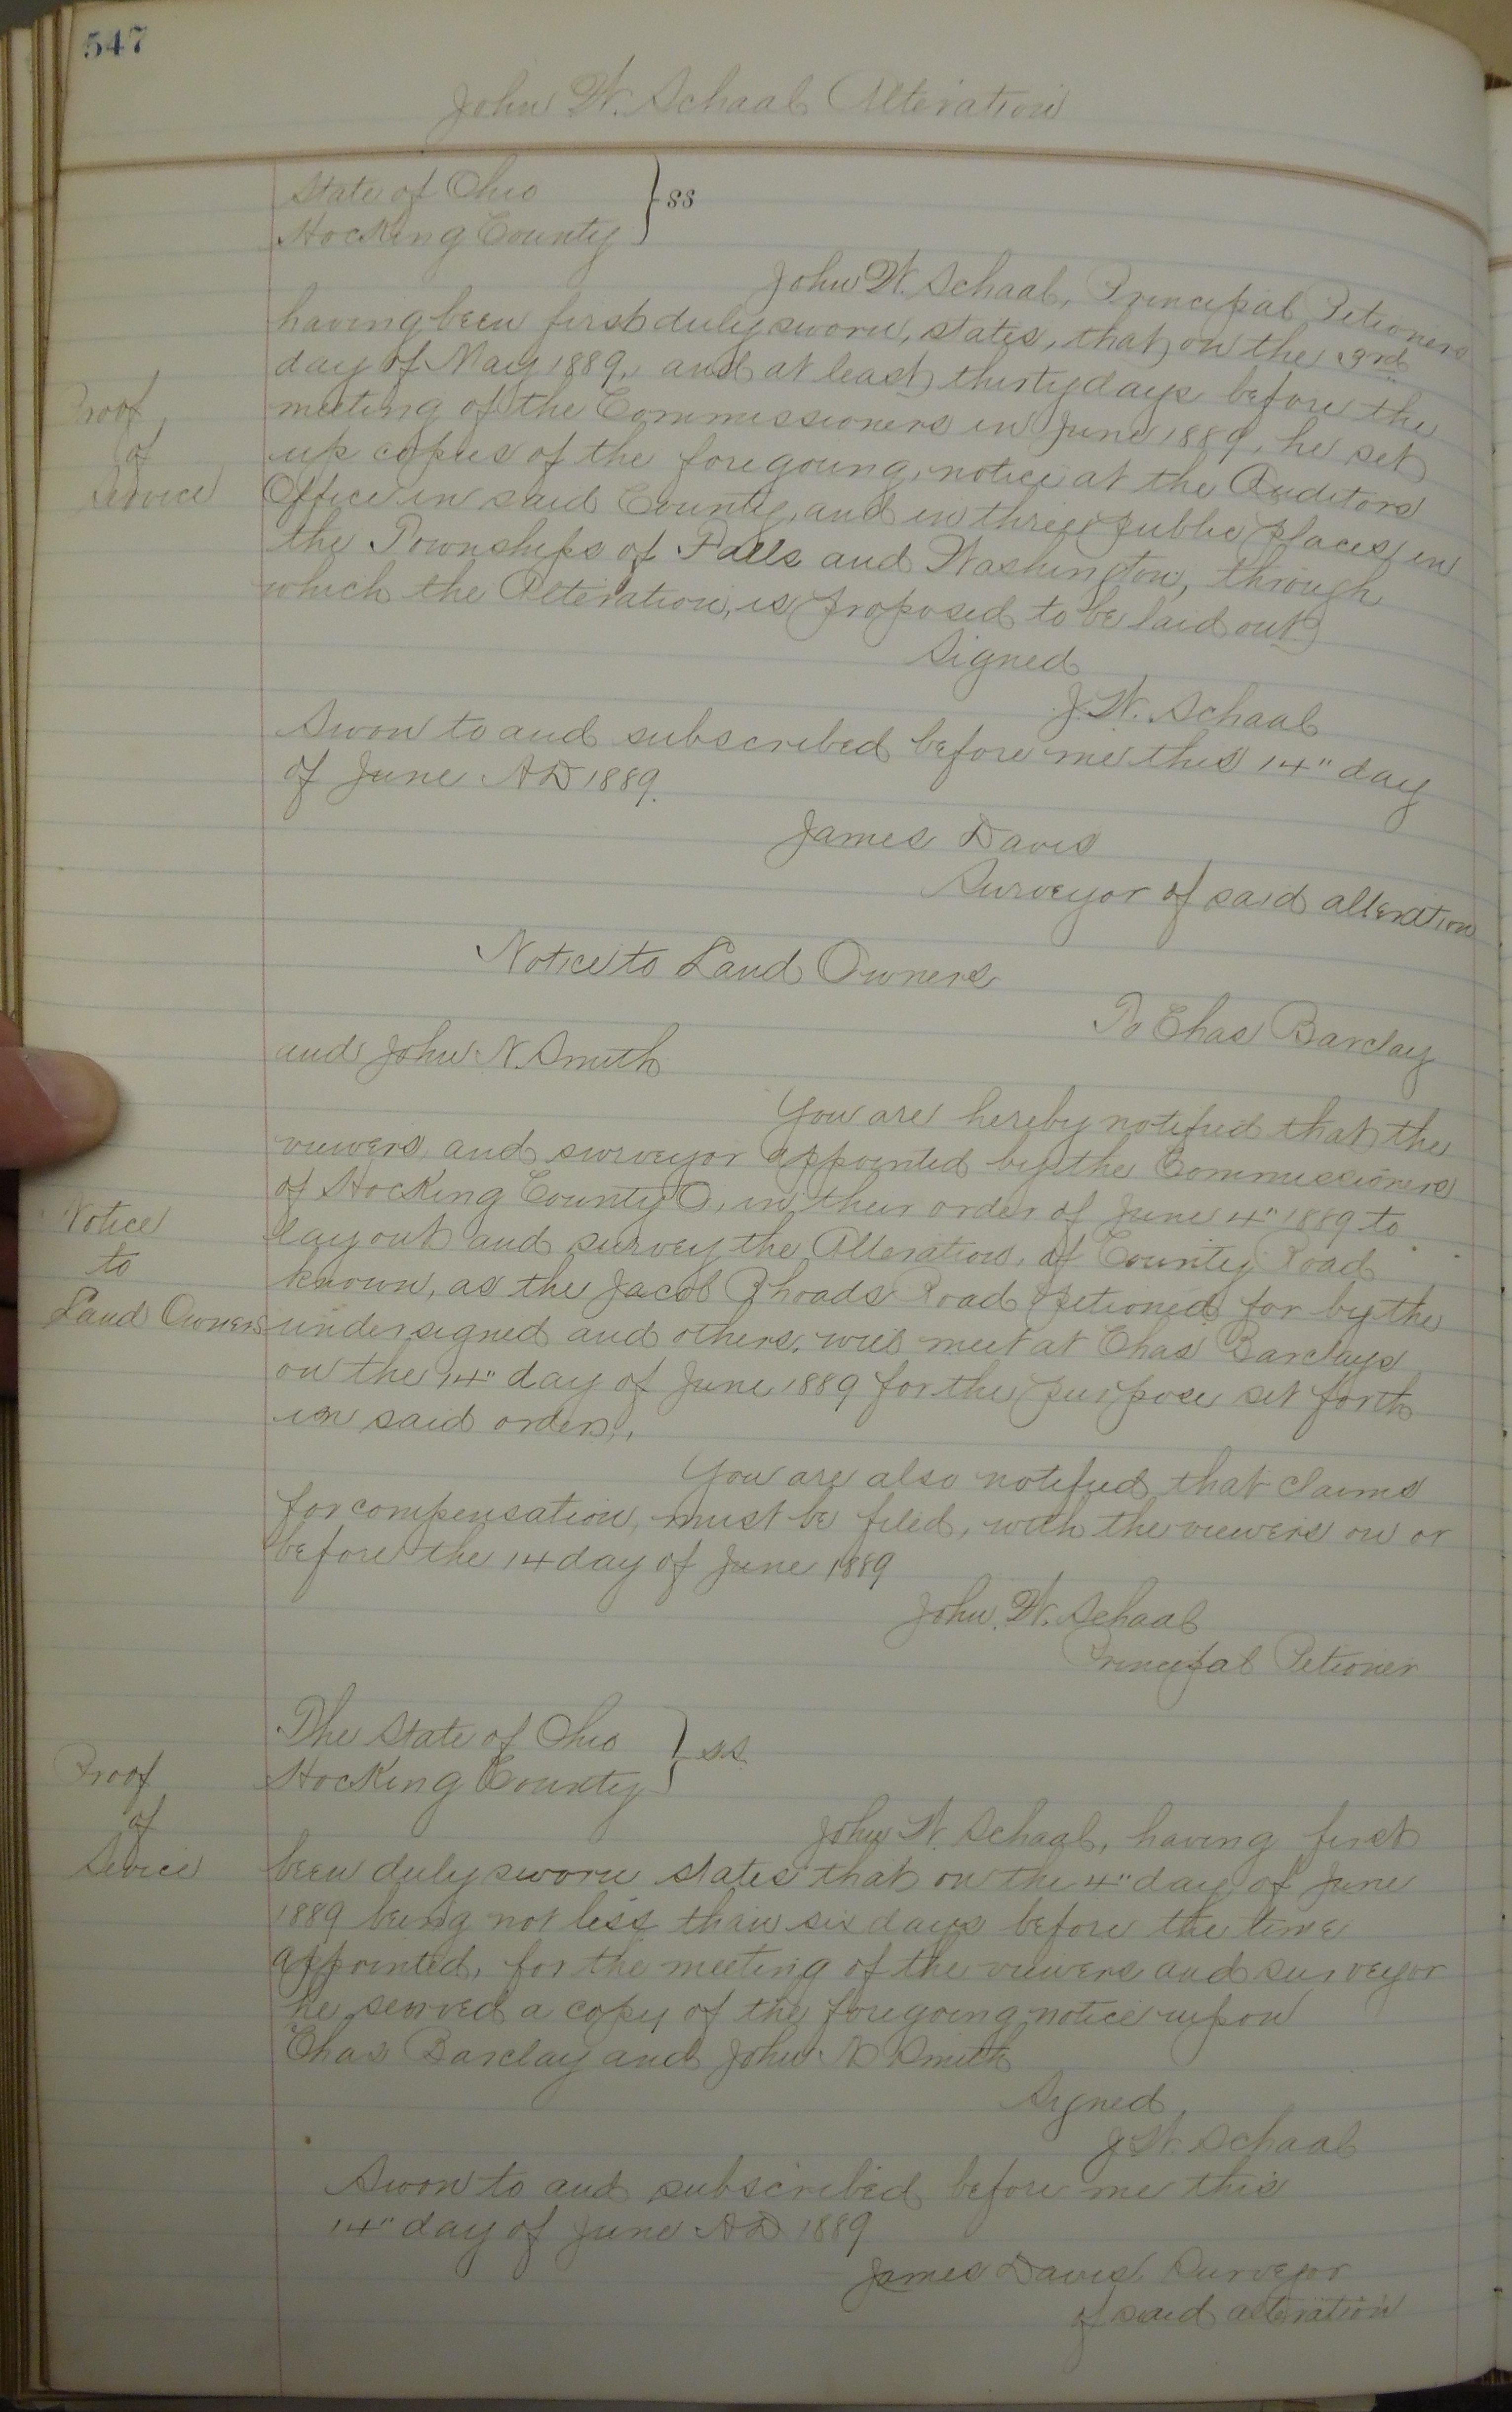 547
John W. Schaal Alteration
State of Ohio
Hocking County } ss
John W. Schaal, Principal Petioners
having been first duly sworn, states, that on the 3rd
day of May 1889, and at least thirty days before the
Proof
of
Service
meeting of the Commissioners in June 1889, he set
up copies of the foregoing notice at the Auditors
Office in said County, and in three public places in
the Townships of Falls and Washington, through
which the Alteration, is proposed to be laid out
Signed
J. W. Schaal
Swon to and subscribed before me this 14" day
of June AD 1889.
James Davis
Surveyor of said alteration
Notice to Land Owners
To Chas Barclay
and John N. Smith
You are hereby notified that the
viewers and surveyor appointed by the Commissioners
of Hocking County O, in their order of June 4" 1889 to
Notice
to
Land Owners
lay out and survey the Alteration, of County Road
known, as the Jacob Rhoads Road petioned for by the
undersigned and others, will meet at Chas Barclays
on the 14" day of June 1889 for the purpose set forth
in said order.
You are also notified that claims
for compensation, must be filed, with the viewers on or
before the 14 day of June 1889
John. W. Schaal
Principal Petioner
The State of Ohio
Hocking County } ss
Proof
of
Sevice
John W. Schaal, having first
been duly sworn states that on the 4" day of June
1889 being not less than six days before the time
appointed, for the meeting of the viewers and surveyor
he served a copy of the foregoing notice upon
Chas Barclay and John N Smith
Signed
J W. Schaal
Swon to and subscribed before me this
14" day of June AD 1889
James Davis Surveyor
of said alteration